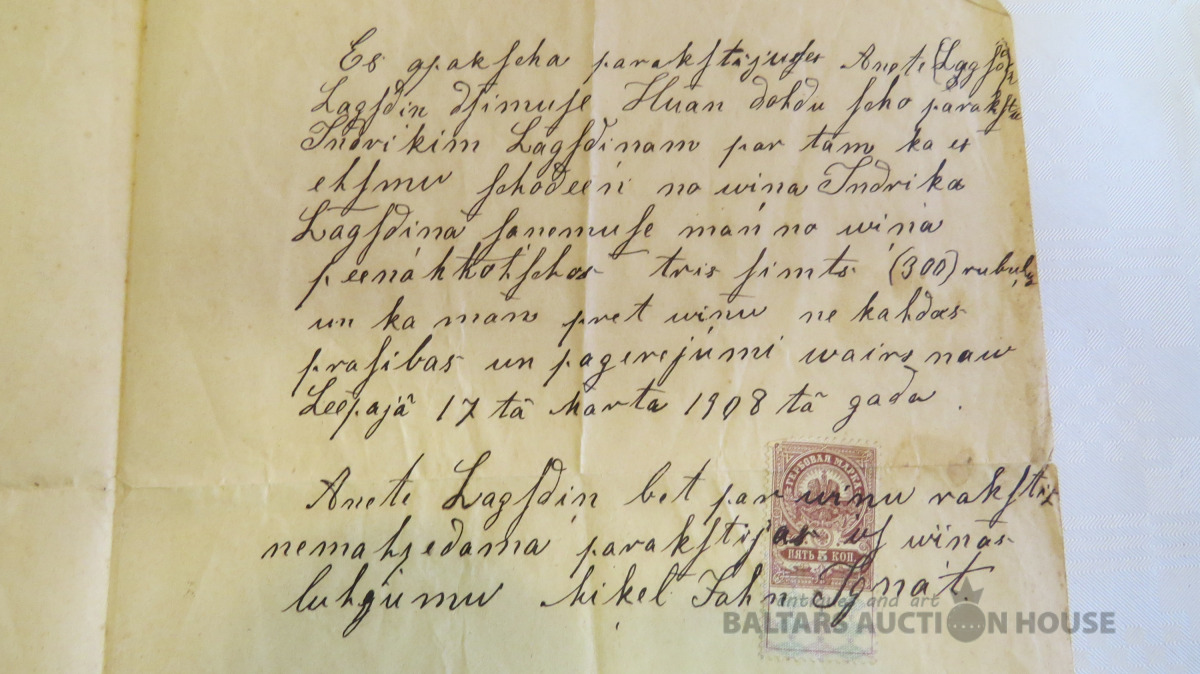 Es apakscha parakstijuses Anete (Lagsdin
Lagsdin dsimuse Huan dohdu scho parakstu
Indrikim Lagsdinam par tam ka es
ehsmu schodeen no wina Indrika
Lagsdina sanemuse man no wina
peenahkhotschos tris simts (300) rubulu
un ka man pret winu ne kahdas
prasibas un pagerejumi wairs naw
Leepajâ 17 tâ Marta 1908 tâ gada.
ГЕРБОВАЯ МАРКА
Anete Lagsdin bet par winu rakstit
nemahzedama parakstijas us winas
5
ПЯТЬ КОП.
luhgumu Mikel Jahn Ignat.
antiques and art
BALTARS AUCTION HOUSE